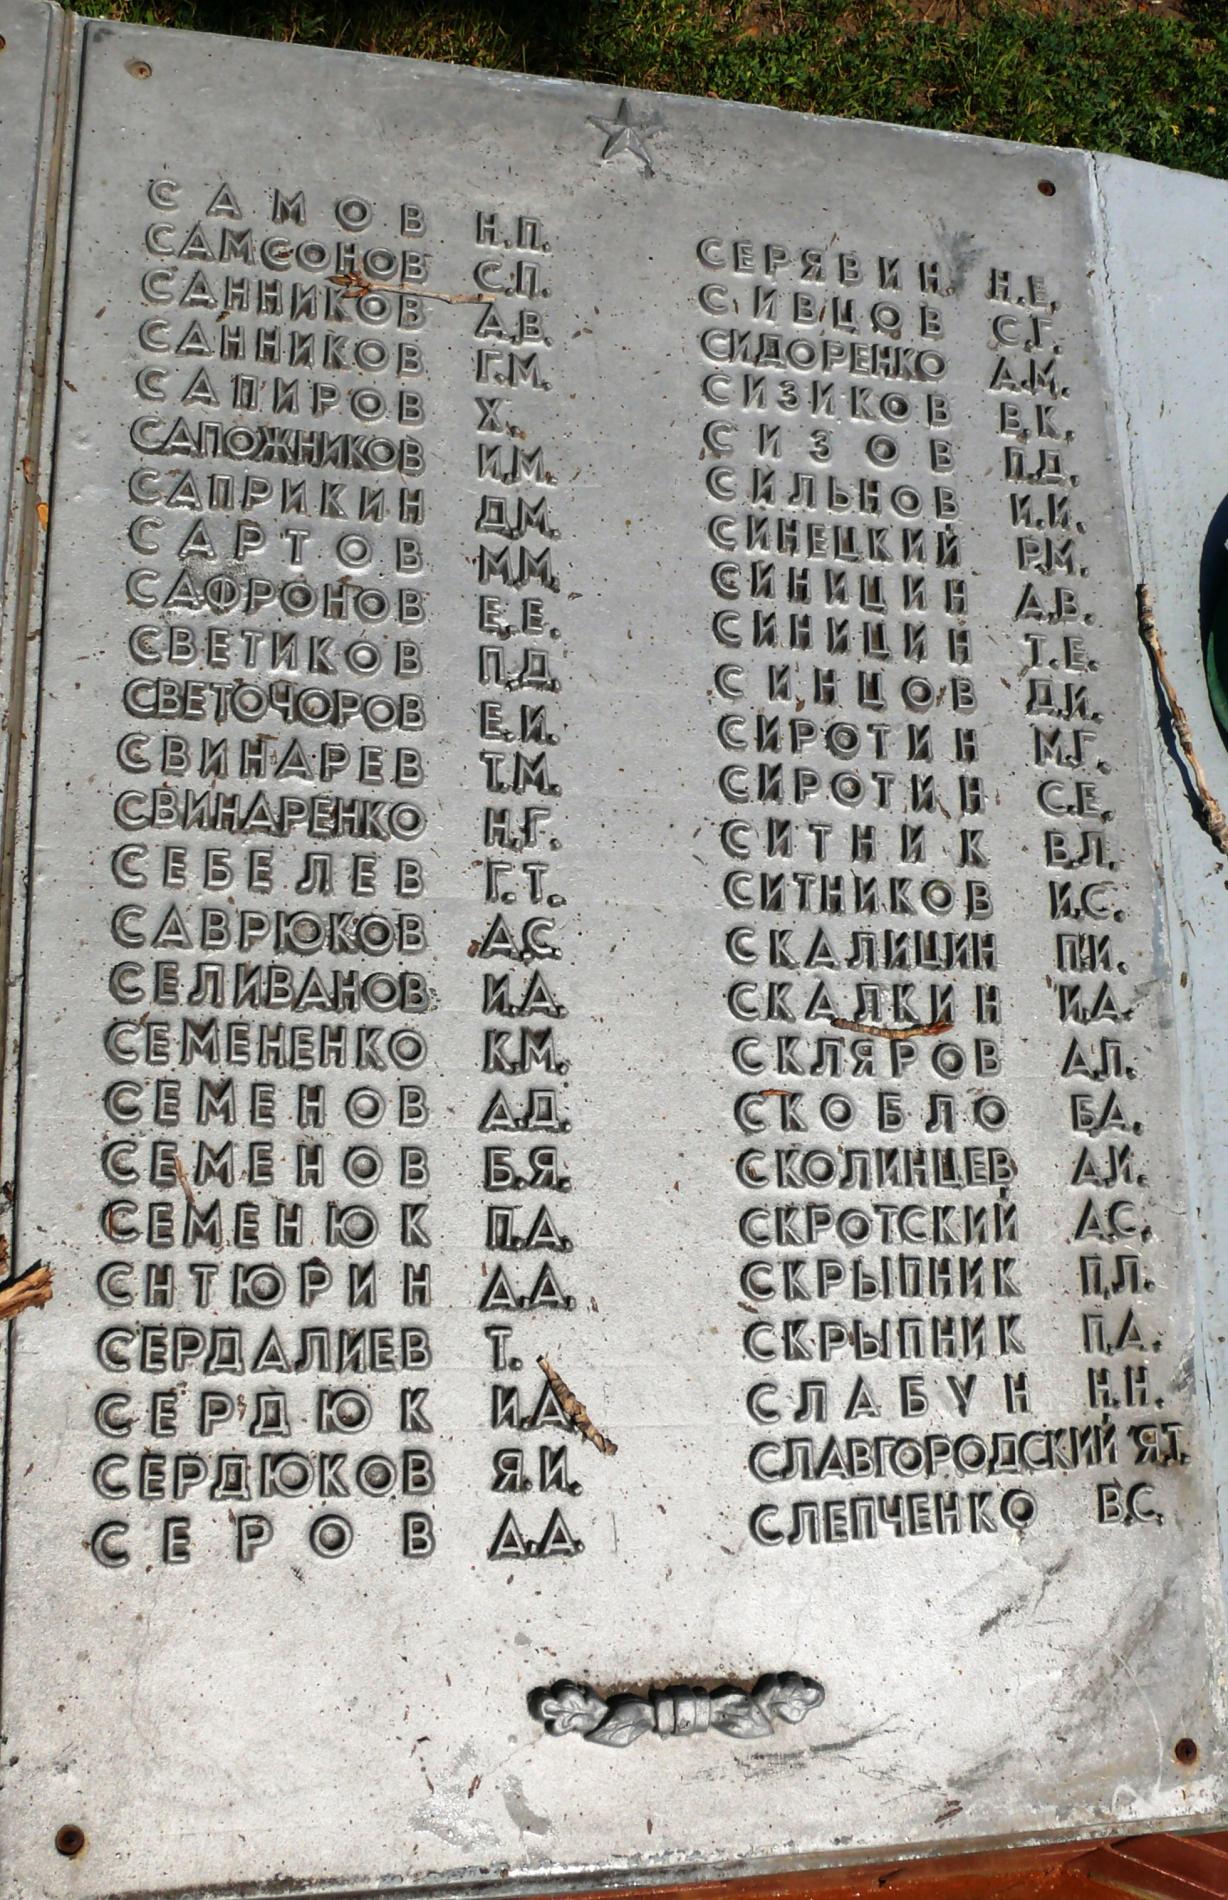 САМОВ Н.П.
САМСОНОВ С.П.
САННИКОВ А.В.
САННИКОВ Г.М.
САПИРОВ Х.
САПОЖНИКОВ И.М.
САПРИКИН Д.М.
САРТОВ М.М.
САФРОНОВ Е.Е.
СВЕТИКОВ П.Д.
СВЕТОЧОРОВ Е.И.
СВИНАРЕВ Т.М.
СВИНАРЕНКО Н.Г.
СЕБЕЛЕВ Г.Т.
САВРЮКОВ А.С.
СЕЛИВАНОВ И.А.
СЕМЕНЕНКО К.М.
СЕМЕНОВ А.Д.
СЕМЕНОВ Б.Я.
СЕМЕНЮК П.А.
СНТЮРИН А.А.
СЕРДАЛИЕВ Т.
СЕРДЮК И.А.
СЕРДЮКОВ Я.И.
СЕРОВ А.А.
СЕРЯВИН Н.Е.
СИВЦОВ С.Г.
СИДОРЕНКО А.М.
СИЗИКОВ В.К.
СИЗОВ П.Д.
СИЛЬНОВ И.И.
СИНЕЦКИЙ Р.М.
СИНИЦИН А.В.
СИНИЦИН Т.Е.
СИНЦОВ Д.И.
СИРОТИН М.Г.
СИРОТИН С.Е.
СИТНИК В.Л.
СИТНИКОВ И.С.
СКАЛИЦИН П.И.
СКАЛКИН И.А.
СКЛЯРОВ А.П.
СКОБЛО Б.А.
СКОЛИНЦЕВ А.И.
СКРОТСКИЙ А.С.
СКРЫПНИК П.Л.
СКРЫПНИК П.А.
СЛАБУН Н.Н.
СЛАВГОРОДСКИЙ Я.Т.
СЛЕПЧЕНКО В.С.